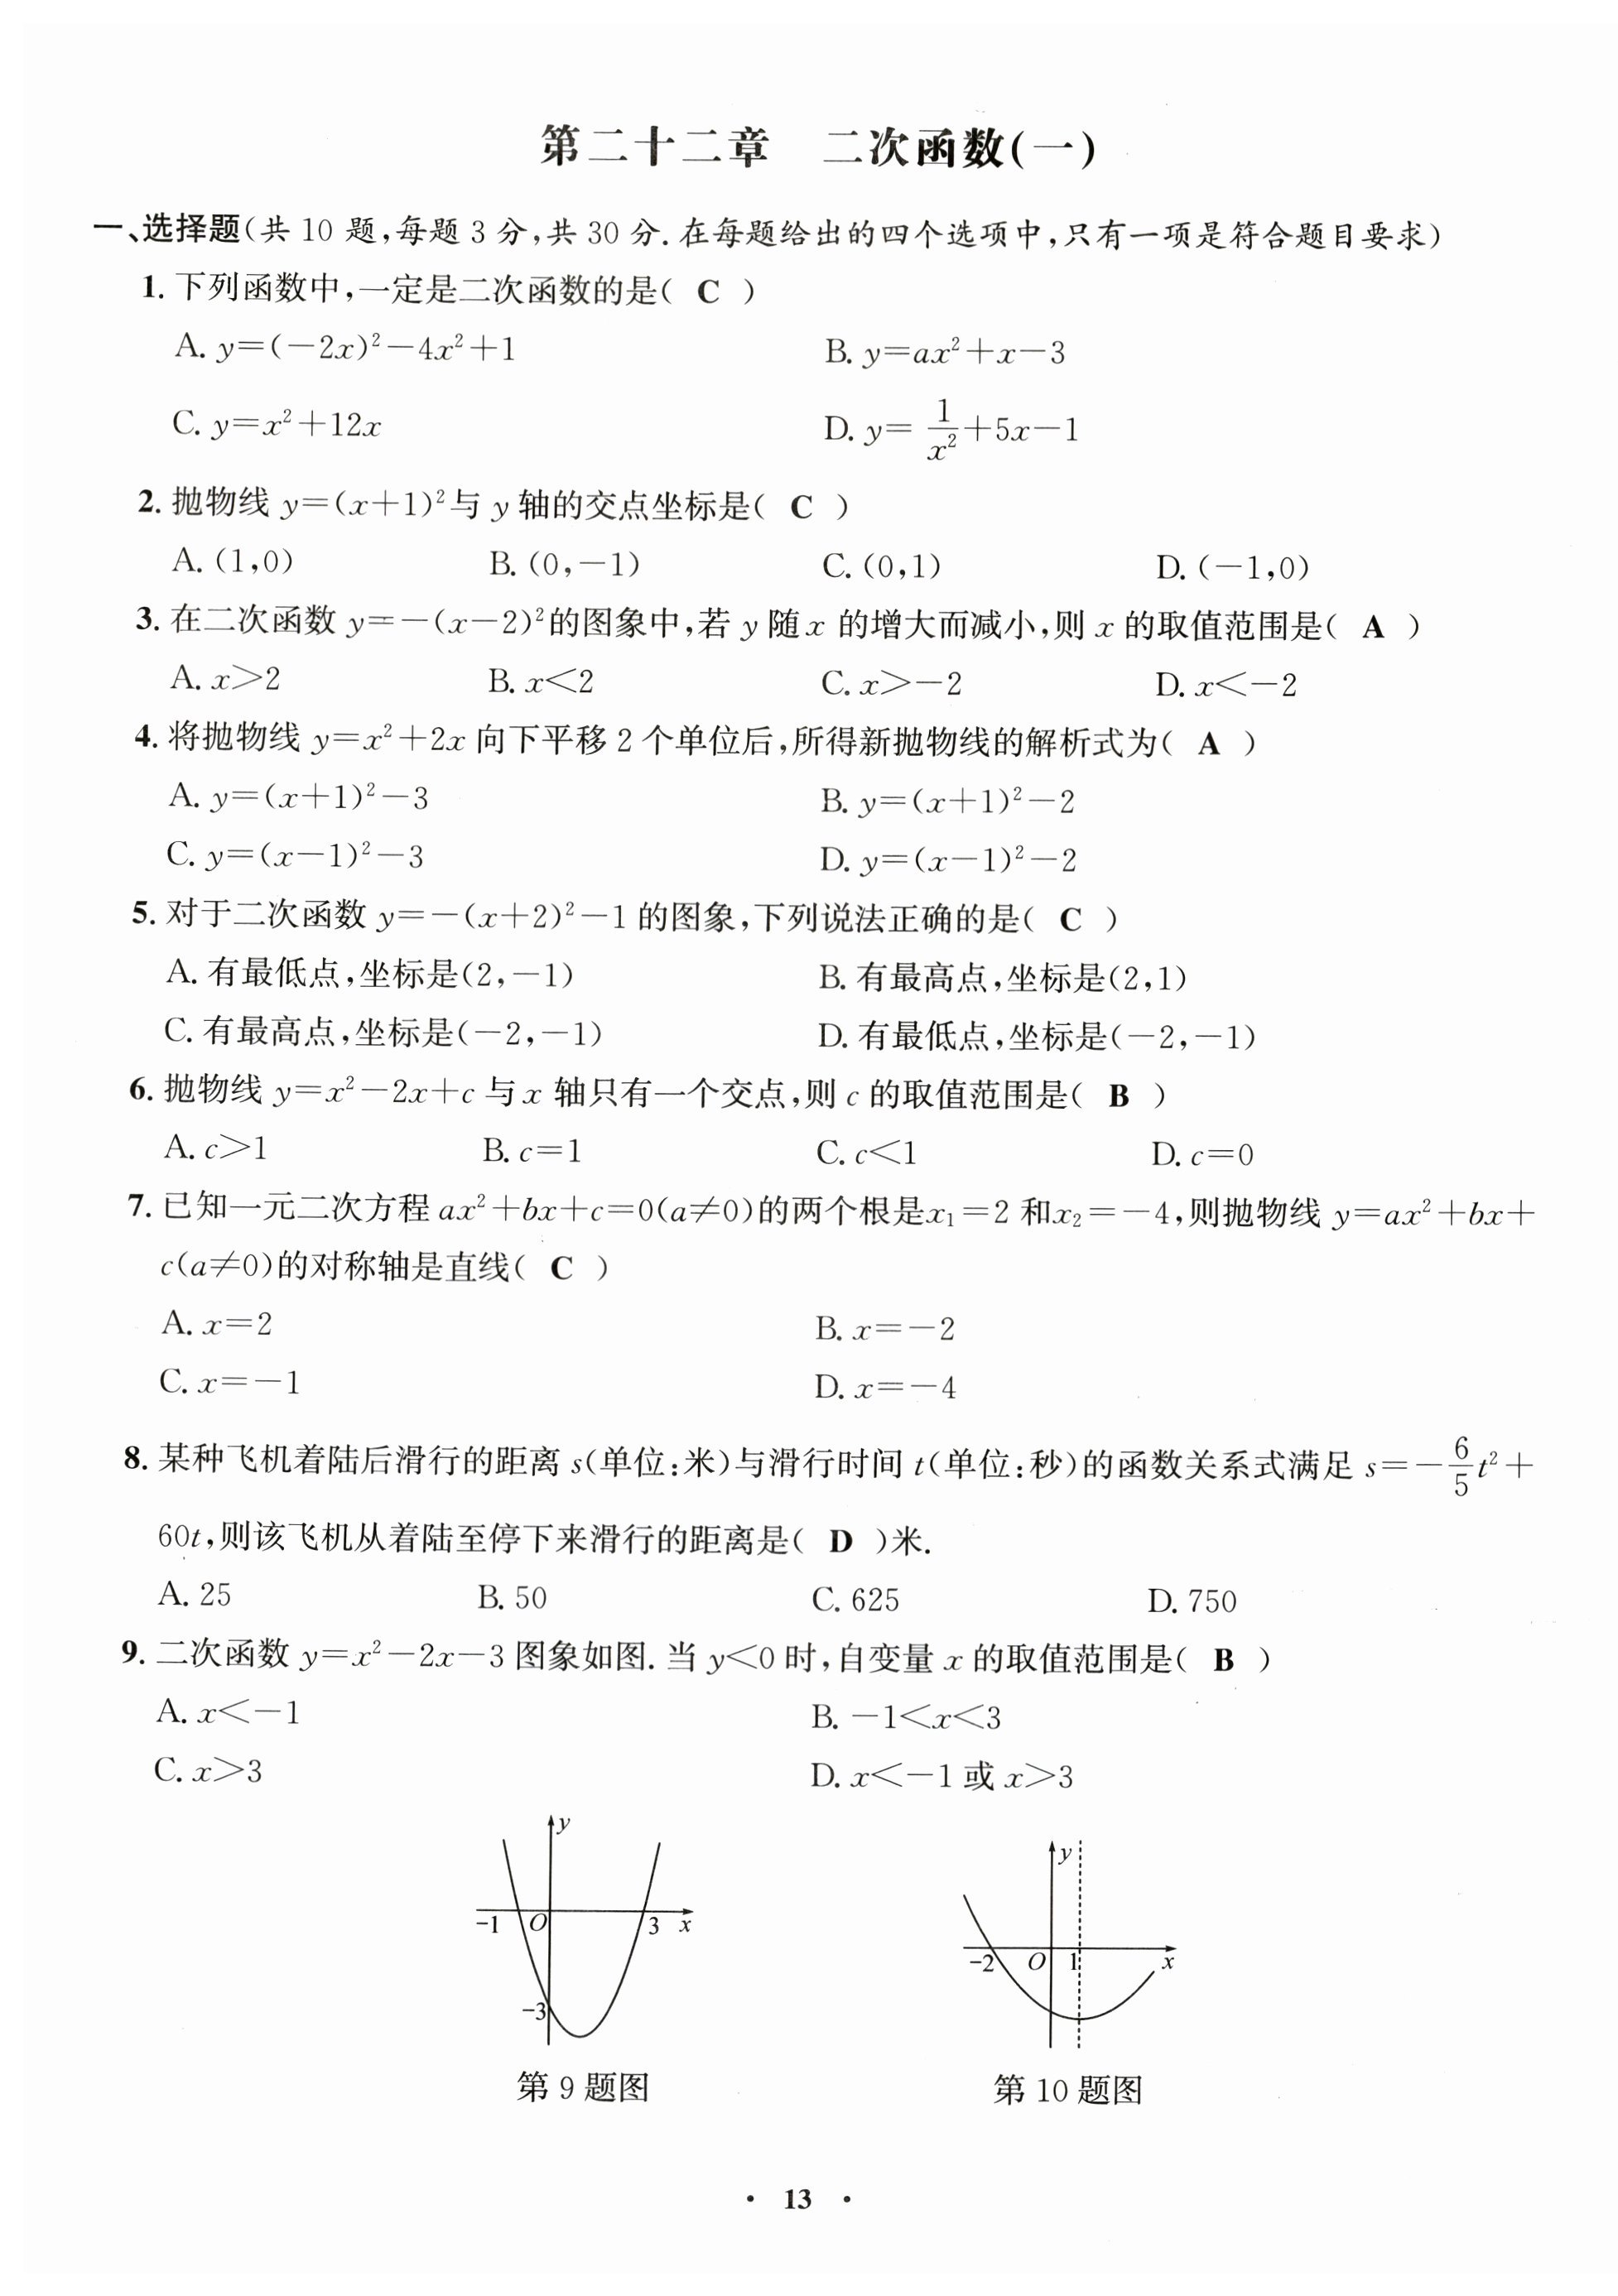 第二十二章 二次函数(一)
一、选择题(共 10 题,每题 3 分,共 30 分.在每题给出的四个选项中,只有一项是符合题目要求)
1. 下列函数中,一定是二次函数的是( C )
A. y=(-2x)²-4x²+1 B. y=ax²+x-3
C. y=x²+12x D. y=1/x²+5x-1
2. 抛物线 y=(x+1)²与 y 轴的交点坐标是( C )
A. (1,0) B. (0,-1) C. (0,1) D. (-1,0)
3. 在二次函数 y=-(x-2)²的图象中,若 y 随 x 的增大而减小,则 x 的取值范围是( A )
A. x>2 B. x<2 C. x>-2 D. x<-2
4. 将抛物线 y=x²+2x 向下平移 2 个单位后,所得新抛物线的解析式为( A )
A. y=(x+1)²-3 B. y=(x+1)²-2
C. y=(x-1)²-3 D. y=(x-1)²-2
5. 对于二次函数 y=-(x+2)²-1 的图象,下列说法正确的是( C )
A. 有最低点,坐标是(2,-1) B. 有最高点,坐标是(2,1)
C. 有最高点,坐标是(-2,-1) D. 有最低点,坐标是(-2,-1)
6. 抛物线 y=x²-2x+c 与 x 轴只有一个交点,则 c 的取值范围是( B )
A. c>1 B. c=1 C. c<1 D. c=0
7. 已知一元二次方程 ax²+bx+c=0(a≠0)的两个根是x₁=2 和x₂=-4,则抛物线 y=ax²+bx+
c(a≠0)的对称轴是直线( C )
A. x=2 B. x=-2
C. x=-1 D. x=-4
8. 某种飞机着陆后滑行的距离 s(单位:米)与滑行时间 t(单位:秒)的函数关系式满足 s=-6/5t²+
60t,则该飞机从着陆至停下来滑行的距离是( D )米.
A. 25 B. 50 C. 625 D. 750
9. 二次函数 y=x²-2x-3 图象如图.当 y<0 时,自变量 x 的取值范围是( B )
A. x<-1 B. -1<x<3
C. x>3 D. x<-1 或 x>3
y
-1 O 3 x
-3
第 9 题图
y
-2 O 1 x
第 10 题图
· 13 ·